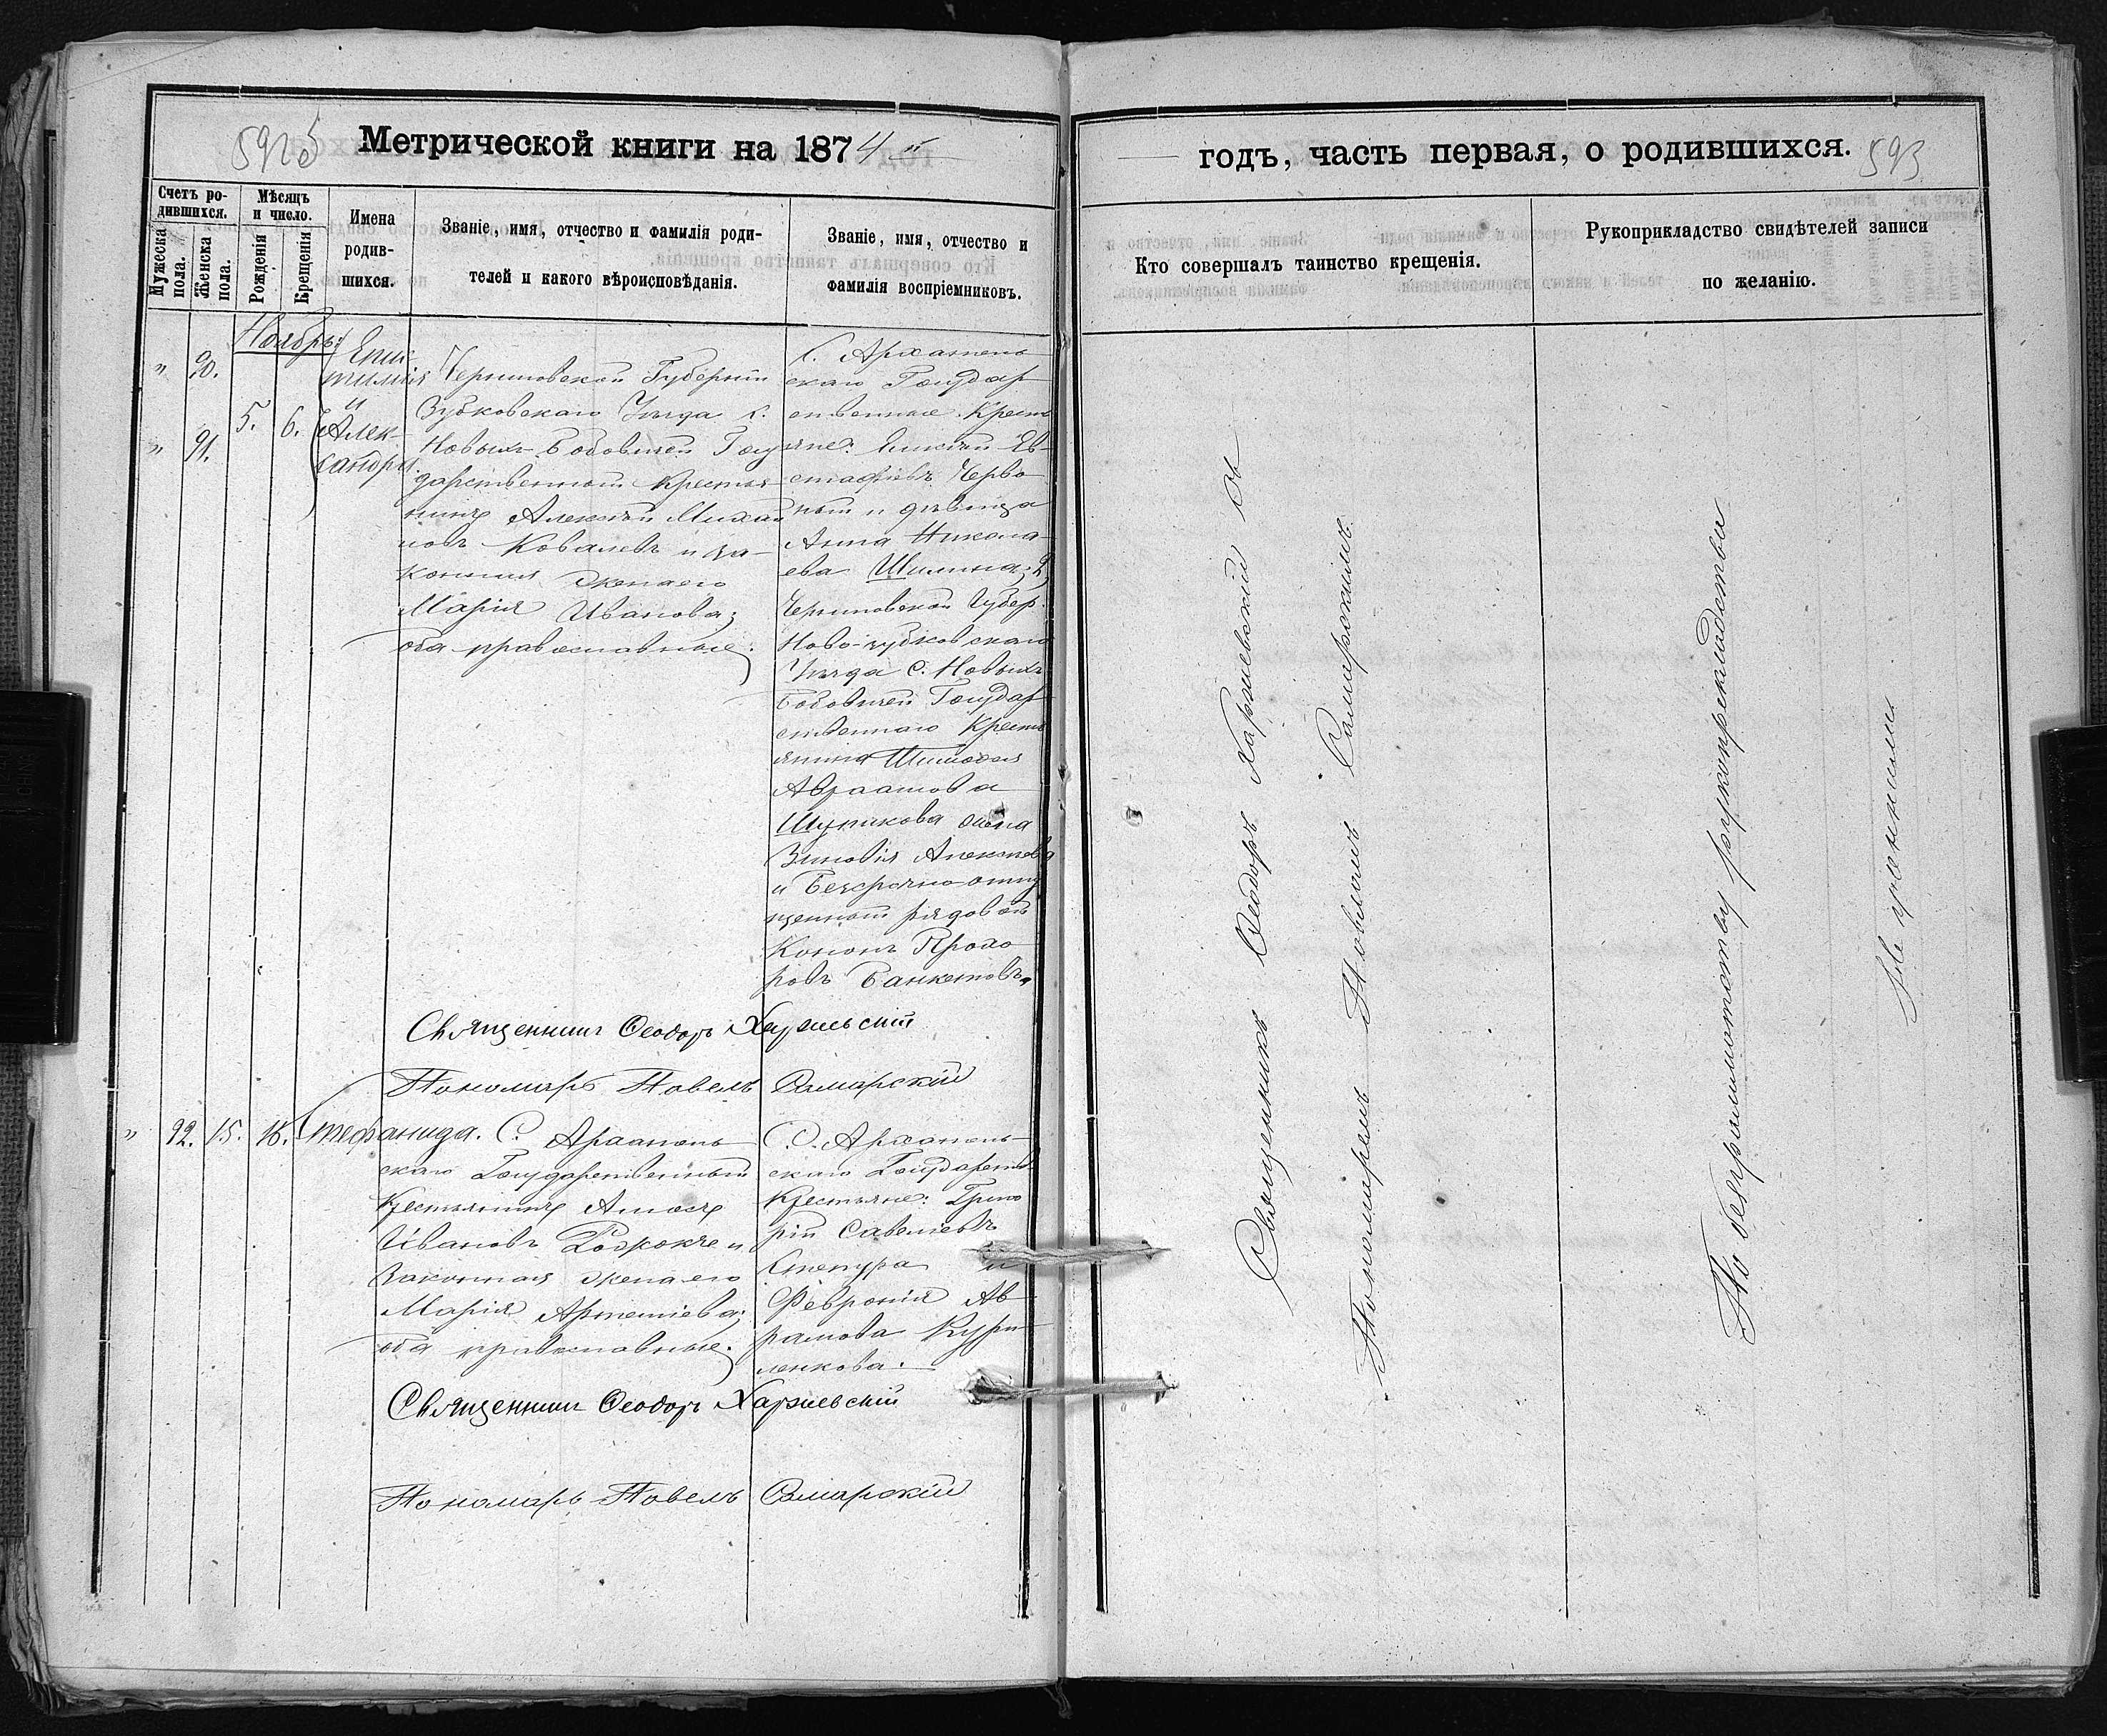 Метрической книги на 1874й
годъ, часть первая, о родившихся.
593
Счетъ ро-
дившихся.
Мужеска
пола.
Женска
пола.
Мѣсяцъ
и число.
Рожденія
Крещенія
Имена
родив-
шихся.
Званіе, имя, отчество и фамилія роди-
телей и какого вѣроисповѣданія.
Званіе, имя, отчество и
фамилія воспріемниковъ.
Кто совершалъ таинство крещенія.
Рукоприкладство свидѣтелей записи
по желанію.
Ноябрь:
" 90.
" 91.
5. 6.
и
Алек-
сандра.
Черниговской Губерніи
Зубковскаго Уѣзда с.
Новыхъ Бобовичей Госу
дарственный крестья
нинъ Алексѣй Михаи
ловъ Ковалевъ и за-
конная жена его
Марія Иванова;
оба православные.
С. Архангель
скаго Государ
ственные Кресть
яне: Евста
фіевъ Черво
ный и дѣвица
Анна Никола
ева Шилина; 2,
Черниговской Губер.
Ново-зубковскаго
Уѣзда С. Новыхъ
Бобовичей Государ
ственнаго Кресть
янина
Авраамова
Шупикова жена
Зиновія Алексѣева
и Безсрочно-отпу
щенный рядовой
Кононъ Прохо
ровъ Банкетовъ.
Священникъ Ѳеодоръ Харжевскій
Пономарь Павелъ Самарскій
" 92. 15. 16. Стефанида.
С. Архангель
скаго Государственный
Крестьянинъ Амосъ
Ивановъ и
Законная жена его
Марія Артеміева;
оба православные.
С. Архангель
скаго Государств.
Крестьяне: Григо
рій Савельевъ
и
Февронія Ав
рамова Кури
ленкова.
Священникъ Ѳеодоръ Харжевскій
Пономарь Павелъ Самарскій
Священникъ Ѳеодоръ Харжевскій съ
Пономаремъ Павломъ Самарскимъ.
По безграмотству рукоприкладства
Не учинили.